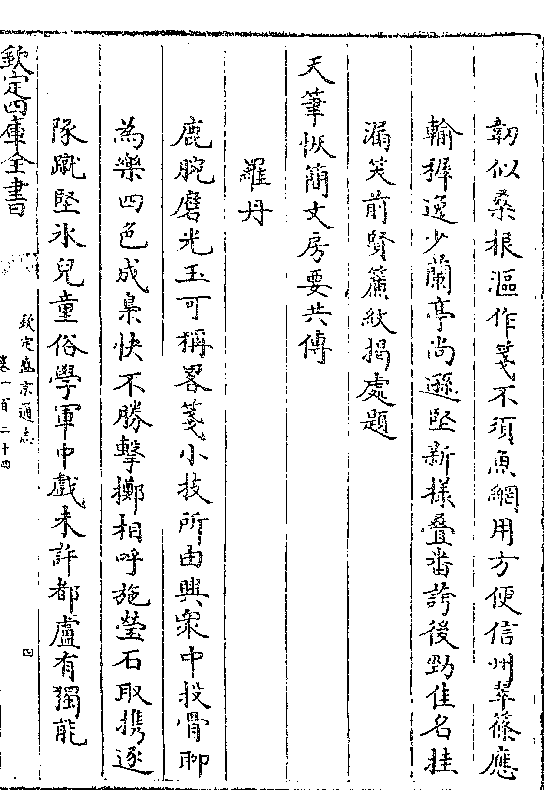 韌似桑根漚作箋不須魚網用方便信州翠篠應
輸穉逸少蘭亭尚遜堅新様疊畨誇後勁佳名挂
漏笑前賢簾紋掲處題
天筆恢蘭文房要共傳
羅丹
鹿腕磨光玉可稱畧箋小技所由興衆中投骨聊
為樂四色成梟快不勝擊擲相呼施瑩石取携逐
隊蹴堅氷兒童俗學軍中戲未許都盧有獨能
欽定四庫全書
欽定盛京通志
卷一百二十四
四